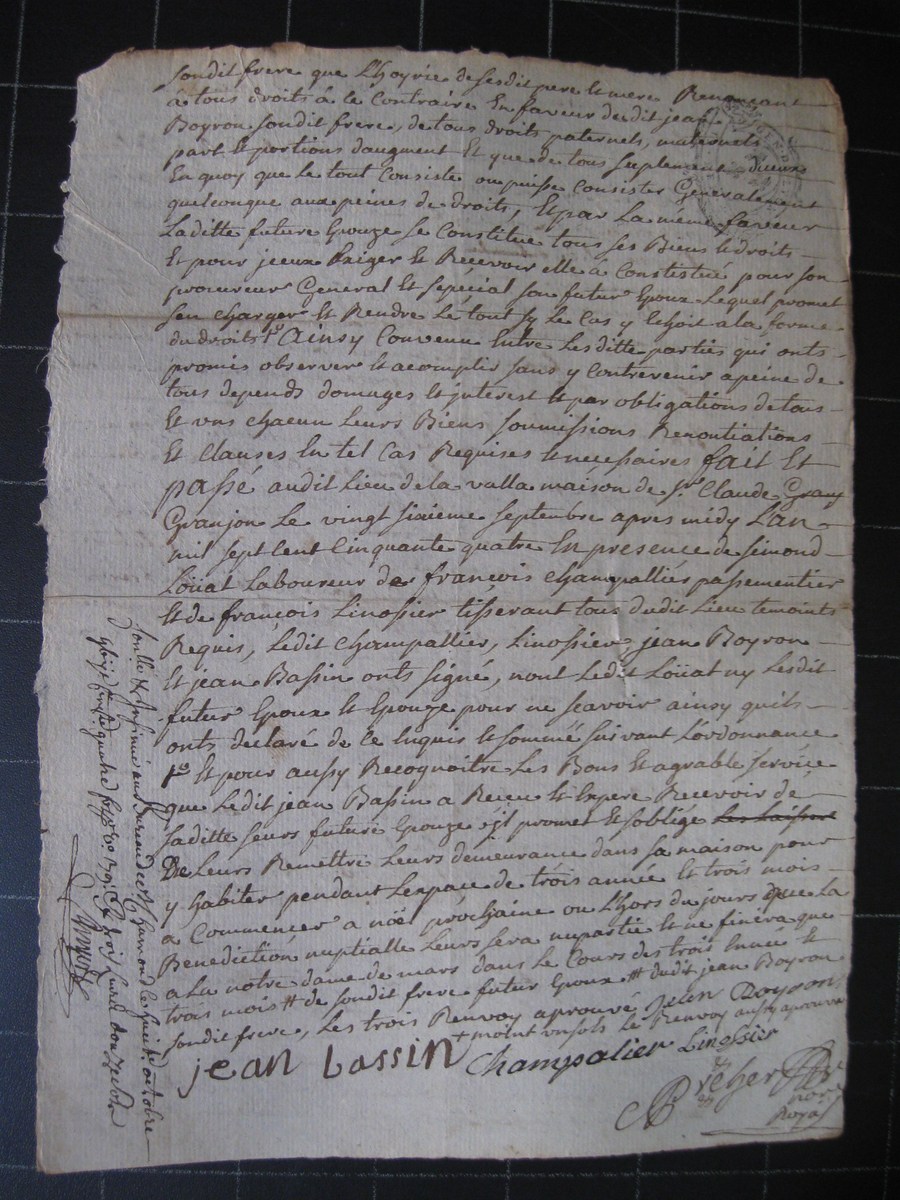 sondit frere que L'hoyrie de sesdit pere et mere Renonçant
à tous droits à le Contraire En faveur dudit jean
Boyron sondit frere, de tous droits paternels, maternels
part et portions daugment Et que de tous suplement
En quoy que le tout Consiste ou puisse Consister Generalement
quelconque aux peines de droits, Et par La même faveur
Laditte future Epouze se Constitue tous ses Biens et droits
Et pour jceux Exiger et Recevoir elle à Constistué pour son
procureur General Et sepécial son futur Epoux Lequel promet
sen charger Et Rendre Le tout sy Le Cas y Echoit a la forme
du droits Ainsy Convenu Entre Lesditte parties qui onts
promis observer Et acomplir sand y Contrevenir a peine de
tous depends domages Et jnterest Et par obligations de tous
Et uns chacun Leurs Biens soumissions Renontiations
Et Clauses En tel Cas Requises et necessaires fait Et
passé audit Lieu de la valla maison de Sr. Claude
Granjon Le vingt sixieme septembre apres midy L'an
mil sept Cent Cinquante quatre En presence de Simond
Loüat Laboureur de francois Champallier passementier
Et de françois Linossier tisserant tous dudit Lieu temoints
Requis, Ledit Champallier, Linossier, jean Boyron
Et jean Bassin onts signé, nont Ledit Loüat ny Lesdit
futur Epoux Et Epouze pour ne sçavoir ainsy quils
onts declaré de Ce Enquis Et sommé suivant L'ordonnance
Et pour aussy Recognoitre Les Bons Et agrable service
que Ledit jean Bassin a Receu Et Espere Recevoir de
saditte seurs future Epouze jl promet Et soblige
De Leurs Remettre Leurs demeurance dans sa maison pour
y habiter pendant Lespace de trois année Et trois mois
a Commencer a nöel prochaine ou L'hors du jours que La
Benediction nuptialle Leurs sera impartie Et ne finira que
a La notre dame de mars dans Le Cours des trois Année Et
trois mois # de sondit frere futur Epoux # dudit jean Boyron
sondit frere, Les trois Renvoy aprouvé Jean Boyron
+ moint un sols Le Renvoy aussy aprouvé
jean bassin Champalier Linossier
not. Royal
Et Insinué au Bureau de St Chamond le huit octobre